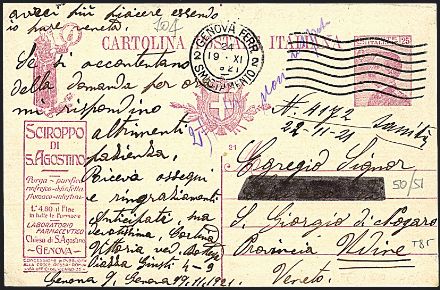 avrei più piacere essendo
io pare veneta.
304
CARTOLINA POSTALE ITALIANA
GENOVA FERR.
19 · XI
21
SMISTAMENTO
25
Se si accontentano
della domanda per ora
mi rispondino
altrimenti
pazienza.
Riceva ossequi
e ringraziamenti
Anticipati, sua
Vittoria ved.
Piazza Giusti 4-9
Genova Genova 17.11.1921.
SCIROPPO
DI
S. AGOSTINO
Purga - purifica
rinfresca - disinfetta
L. 4,80 il Flac.
in tutte le Farmacie
LABORATORIO
FARMACEUTICO
Chiesa di S. Agostino
- GENOVA -
21
N. 4172
22-11-21
Egregio Signor
50/51
S. Giorgio di Nogaro
Provincia Udine
T85
Veneto.